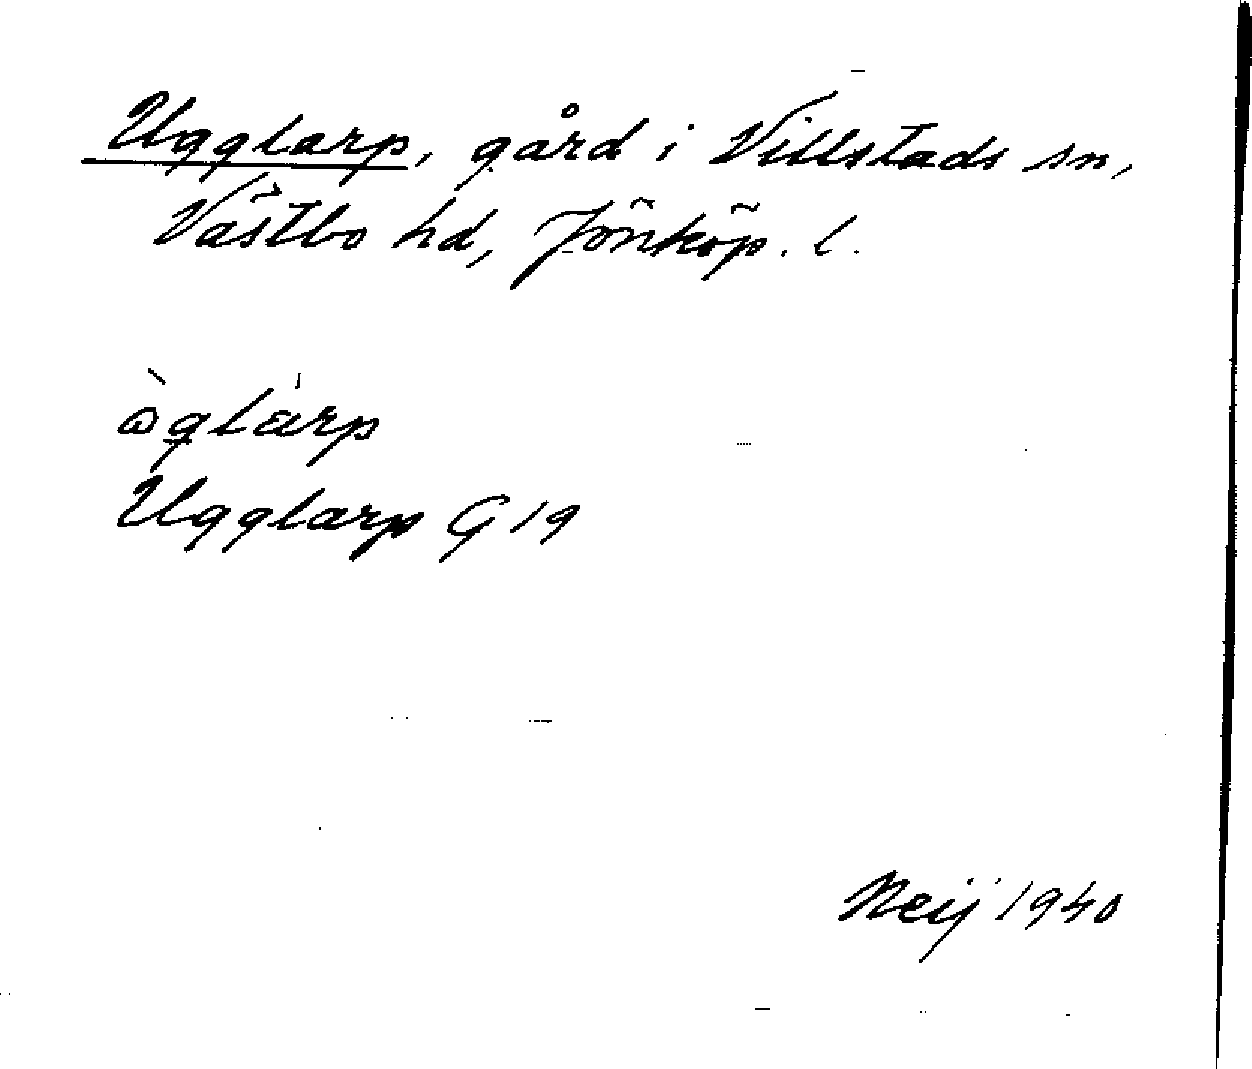 Ugglarp, gård i Villstads sn,
Västbo hd, Jönköp. l.
Ugglarp G 19
Neij 1940